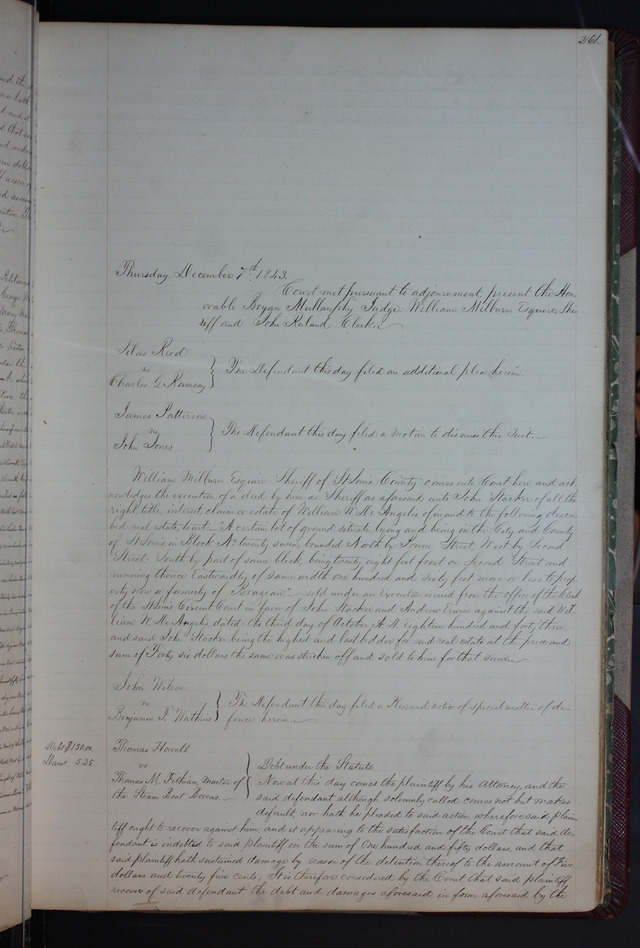 261.
Thursday December 7th 1843.
Court met pursuant to adjournment, present the Hon
orable Bryan Mullanphy Judge. William Milburn Esquire She
riff and John Ruland Clerk.
Silas Reed
vs
Charles G Ramsay
The Defendant this day filed an additional plea herein
James Patterson
vs
John Jones
The Defendant this day filed a Motion to dismiss this Suit.
William Milburn Esquire Sheriff of St Louis County comes into Court here and ack
nowledges the execution of a deed by him as Sheriff as aforesaid unto John Stacker of all the
right, title, interest claim or estate of William W. McAngelis of in and to the following descri
bed real estate, to wit:- A certain lot of ground situate, lying and being in the City and County
of St Louis in Block No twenty seven, bounded North by Street, West by Second
Street, South by part of same block, being twenty eight feet front on Second Street and
running thence Eastwardly of same width one hundred and sixty feet more or less to prop
erty now or formerly of Brazeau - sold under an Execution issued from the office of the Clerk
of the St Louis Circuit Court in favor of John Stacker and Andrew Erwin against the said Wil
liam W. McAngelis, dated the third day of October A.D. Eighteen hundred and forty three,
and said John Stacker being the highest and last bidder for said real estate at the price and
sum of Forty six dollars the same was stricken off and sold to him for that sum.
John Wilson
vs
Benjamin F. Watkins
The Defendant this day filed a Plea and notice of special matter of de-
fence herein.
Debt $150.00
Dams. 5.25
Thomas Howell
vs
Thomas M. Master of
the Steam Boat
Debt under the Statute.
Now at this day comes the plaintiff by his Attorney, and the
said defendant although solemnly called comes not but makes
default, nor hath he pleaded to said action, wherefore said plain
tiff ought to recover against him, and it appearing to the satisfaction of the Court that said de-
fendant is indebted to said plaintiff in the sum of One hundred and fifty dollars, and that
said plaintiff hath sustained damage by reason of the detention thereof to the amount of Five
dollars and twenty five cents; It is therefore considered by the Court that said plaintiff
recover of said defendant the debt and damages aforesaid in form aforesaid by the